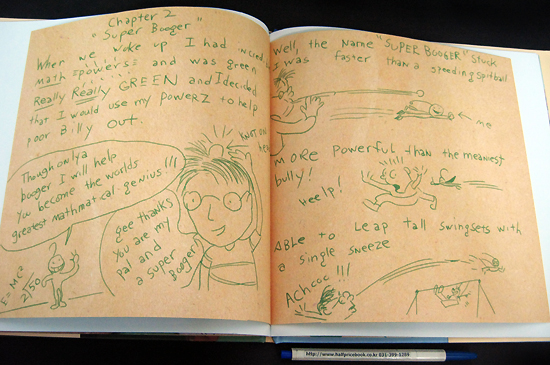 Chapter 2
"Super Booger"
When we woke up I had
math powers and was green
Really Really GREEN and I decided
that I would use my powerz to help
poor Billy out.
Though only a
booger I will help
you become the worlds
greatest mathmatical genius!!!
gee thanks
You are my
pal and
a super
Booger
E=MC²
Well, the Name "SUPER BOOGER" Stuck
I was faster than a speeding spitball
me
more powerful than the meanest
bully!
Heelp!
Able to Leap tall swingsets with
a single sneeze
Achooo!!!
http://www.halfpricebook.co.kr 031-399-5289